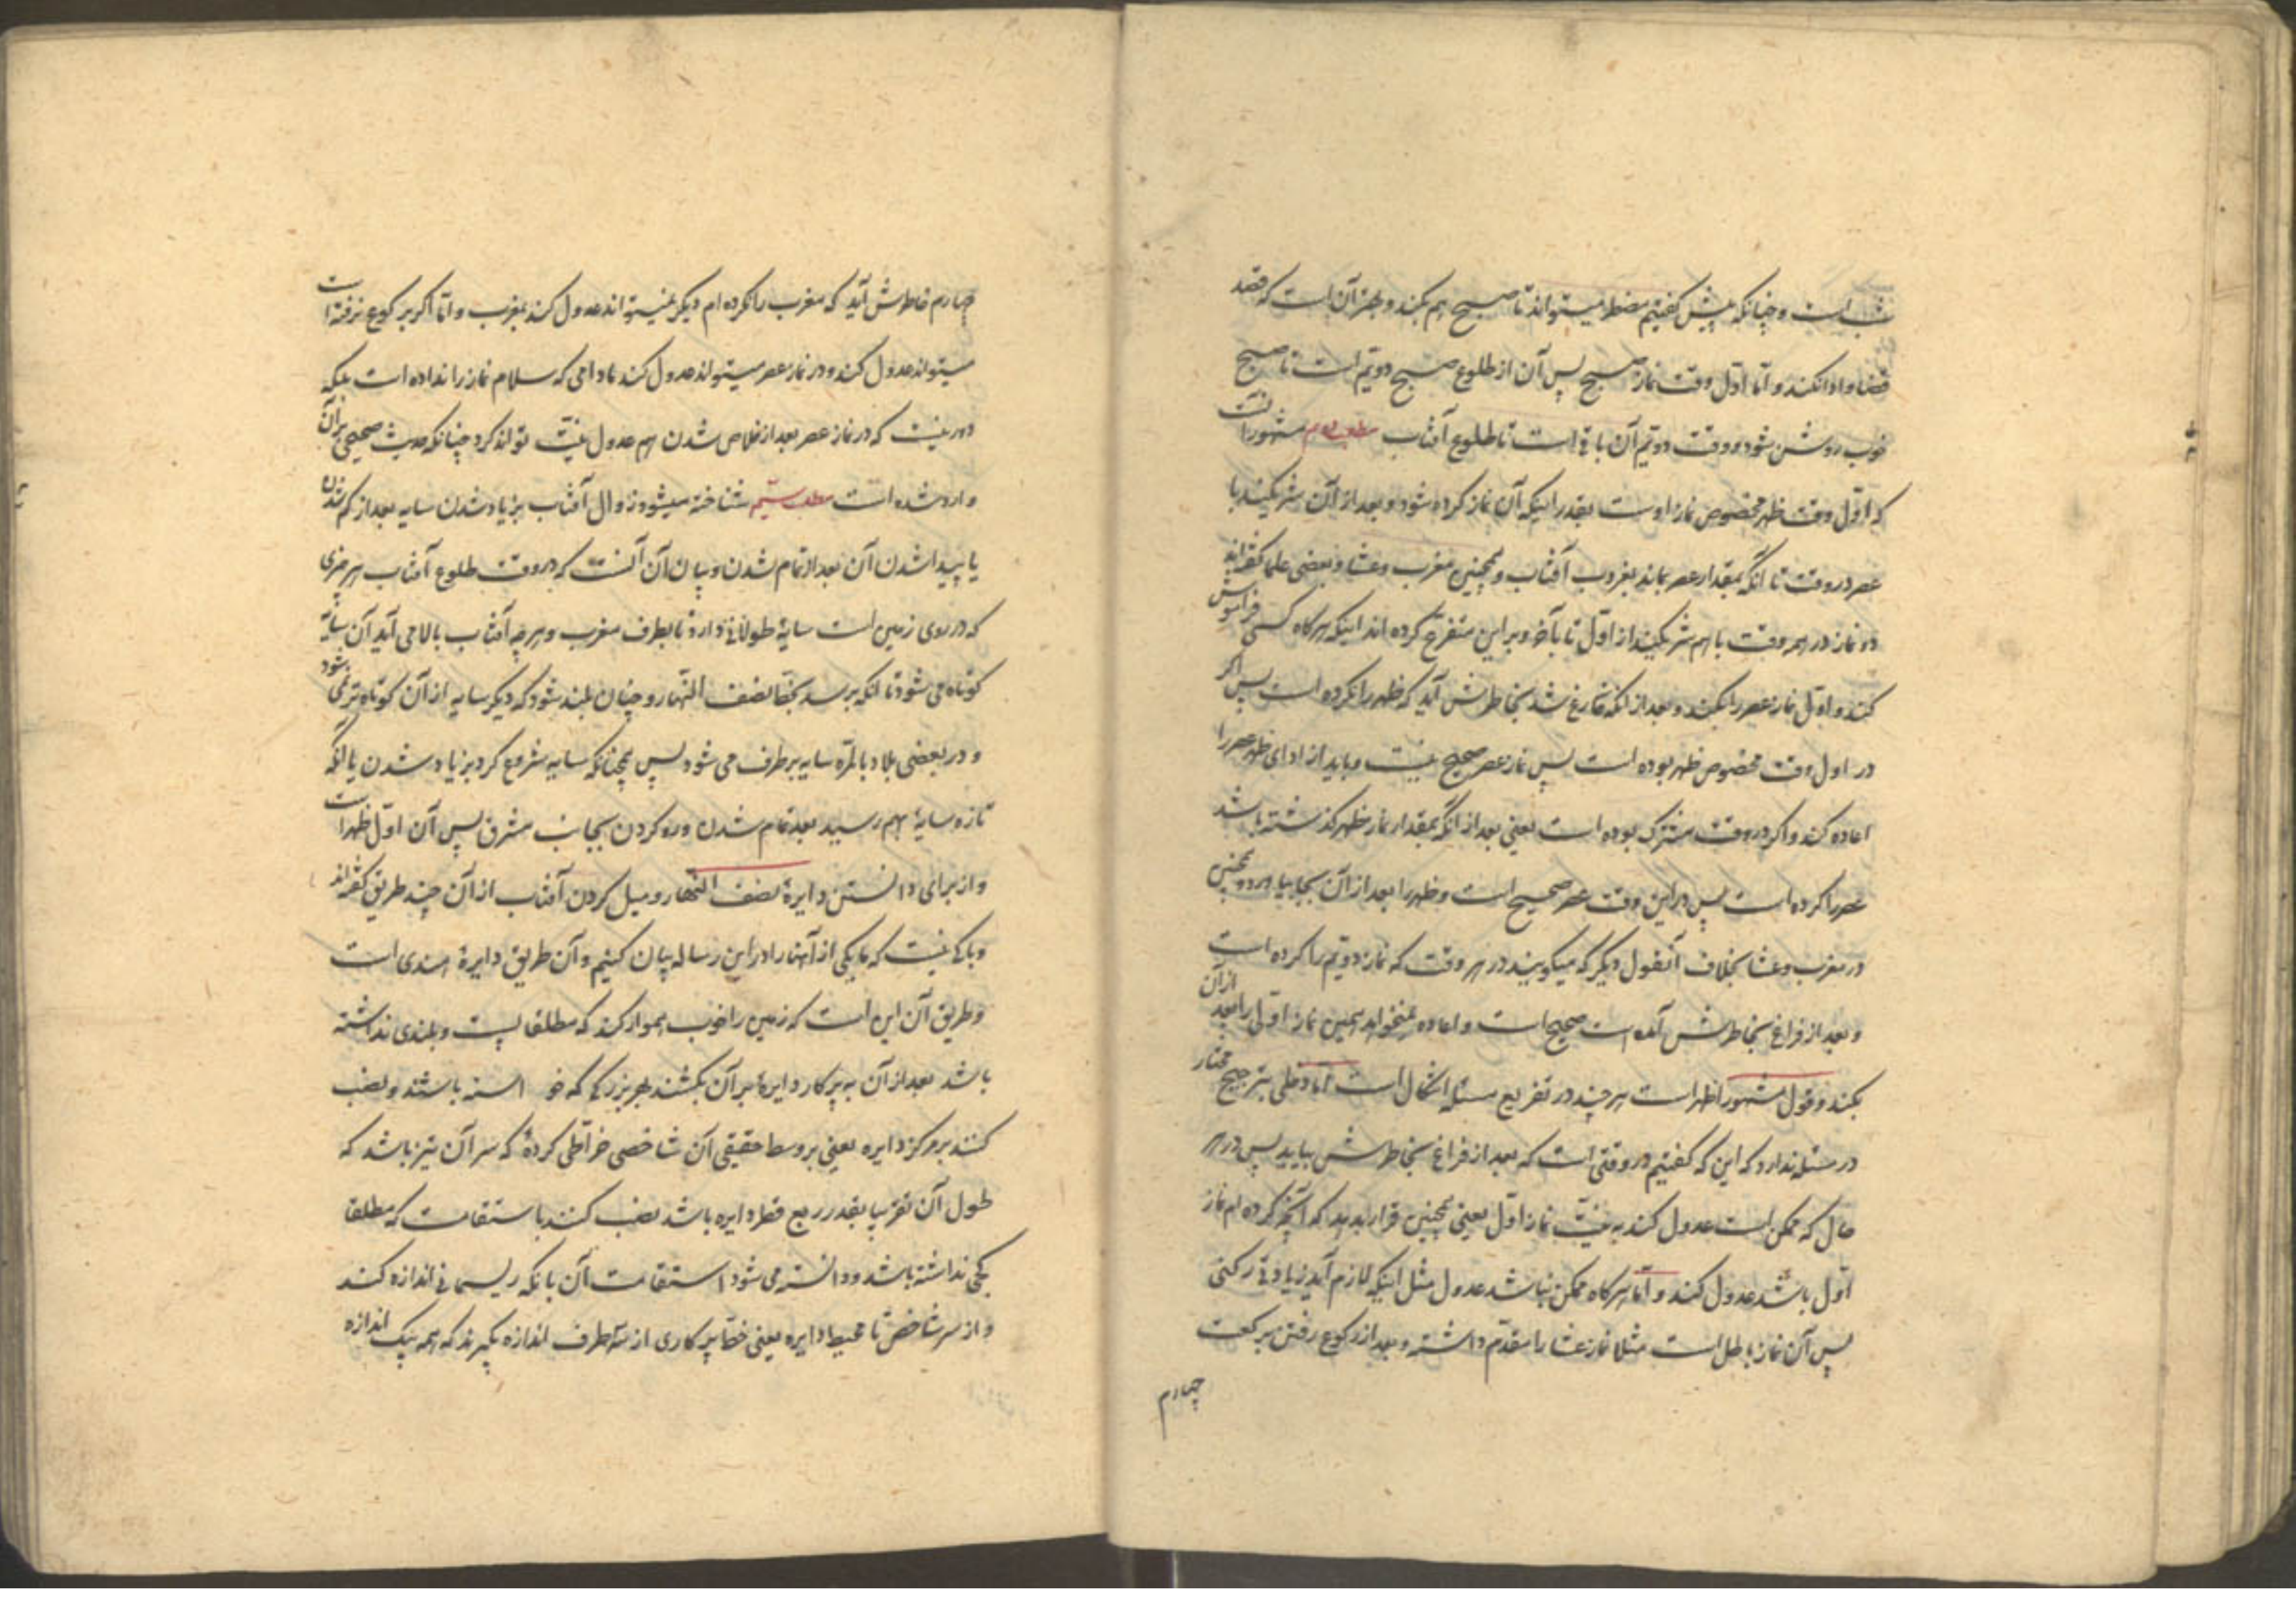 شب است و چنانکه پیش گفتیم مضطر میتواند تا صبح هم بکند و بهتر آن است که قصد
قضا و ادا نکند و اما اول وقت نماز صبح پس آن از طلوع صبح دویم است تا صبح
خوب روشن شود و وقت دویم آن باقی است تا طلوع آفتاب مشهور آنست
که اول وقت ظهر مخصوص نماز اوست بقدر اینکه آن نماز کرده شود و بعد از آن شریکند با
عصر در وقت تا آنکه بمقدار عصر بماند بغروب آفتاب و همچنین مغرب و عشا و بعضی علما گفته‌اند
دو نماز در همه وقت با هم شریکند از اول تا بآخر و بر این متفرع کرده اند اینکه هرگاه کسی فراموش
کند و اول نماز عصر را بکند و بعد از آنکه فارغ شد بخاطرش آید که ظهر را نکرده است پس اگر
در اول وقت مخصوص ظهر بوده است پس نماز عصر صحیح نیست و باید از ادای ظهر عصر را
اعاده کند و اگر در وقت مشترک بوده است یعنی بعد از آنکه بمقدار نماز ظهر گذشته باشد
عصر را کرده است پس در این وقت عصر صحیح است و ظهر را بعد از آن بجا بیاورد و همچنین
در مغرب و عشا بخلاف آنقول دیگر که میگویند در هر وقت که نماز دویم را کرده است
و بعد از فراغ بخاطرش آمده است صحیح است و اعاده نمیخواهد همین نماز اولی را بعد از آن
بکند و قول مشهور اظهر است هر چند در تفریع مسئله اشکال است اما دخلی بترجیح مختار
در مسئله ندارد که این که گفتیم در وقتی است که بعد از فراغ بخاطرش بیاید پس در هر
حال که ممکن است عدول کند به نیت نماز اول یعنی همچنین قرار بدهد که آنچه کرده ام نماز
اول باشد عدول کند و اما هرگاه ممکن نباشد عدول مثل اینکه لازم آید زیادتی رکنی
پس آن نماز باطل است مثلا نماز عشا را مقدم داشته و بعد از رکوع رفتن برکعت
چهارم
چهارم خاطرش آید که مغرب را نکرده ام دیگر نمیتواند عدول کند بمغرب و اما اگر برکوع نرفته است
میتواند عدول کند و در نماز عصر میتواند عدول کند مادامی که سلام نماز را نداده است بلکه
دور نیست که در نماز عصر بعد از خلاص شدن هم عدول نیت تواند کرد چنانکه حدیث صحیحی بر آن
وارد شده است مطلب سیم شناخته میشود زوال آفتاب بزیاد شدن سایه بعد از کم شدن
یا پیدا شدن آن بعد از تمام شدن و بیان آن آنست که در وقت طلوع آفتاب هر چیزی
که در روی زمین است سایهٔ طولانی دارد تا بطرف مغرب و هر چه آفتاب بالا می آید آن سایه
کوتاه می شود تا آنکه برسد بخط نصف النهار و چنان بلند شود که دیگر سایه از آن کوتاه تر نمی شود
و در بعضی بلاد بالمره سایه برطرف می شود پس همچنانکه سایه شروع کرد بزیاد شدن یا آنکه
تازه سایهٔ بهم رسید بعد تمام شدن و رو کردن بجانب مشرق پس آن اول ظهر است
و از برای دانستن دایرهٔ نصف النهار و میل کردن آفتاب از آن چند طریق گفته‌اند
و باکی نیست که ما یکی از آنها را در این رساله بیان کنیم و آن طریق دایرهٔ هندی است
و طریق آن این است که زمین را خوب هموار کند که مطلقا پست و بلندی نداشته
باشد بعد از آن به پرکار دایرهٔ بر آن بکشند بهر بزرگی که خو استه باشند و نصب
کنند بر مرکز دایره یعنی بر وسط حقیقی آن شاخصی خراطی کردهٔ که سر آن تیز باشد که
طول آن تقریبا بقدر ربع قطر دایره باشد نصب کنند باستقامت که مطلقا
کجی نداشته باشد و دانسته می شود استقامت آن بانکه ریسمانی اندازه کند
و از سر شاخص تا محیط دایره یعنی خط پرکاری از سه طرف اندازه بگیرند که همه بیک اندازه